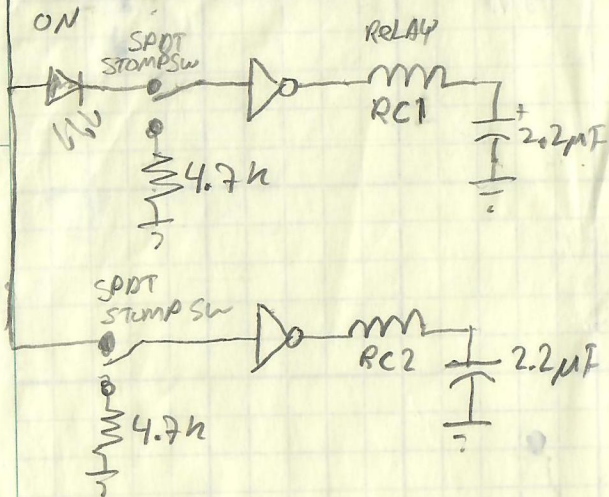 ON
SPDT
STOMP SW
RELAY
RC1
+
2.2µF
4.7K
SPDT
STOMP SW
RC2
2.2µF
4.7K